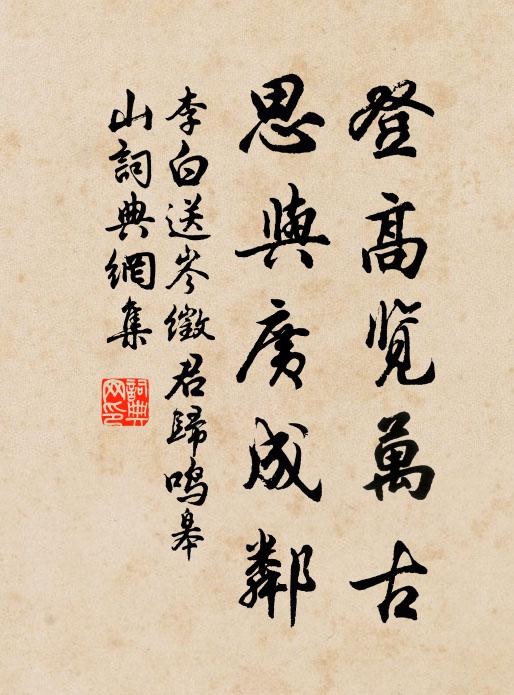 登高覽萬古
思與廣成鄰
李白送岑徵君歸鳴皋
山詞典網集
詞典
网印